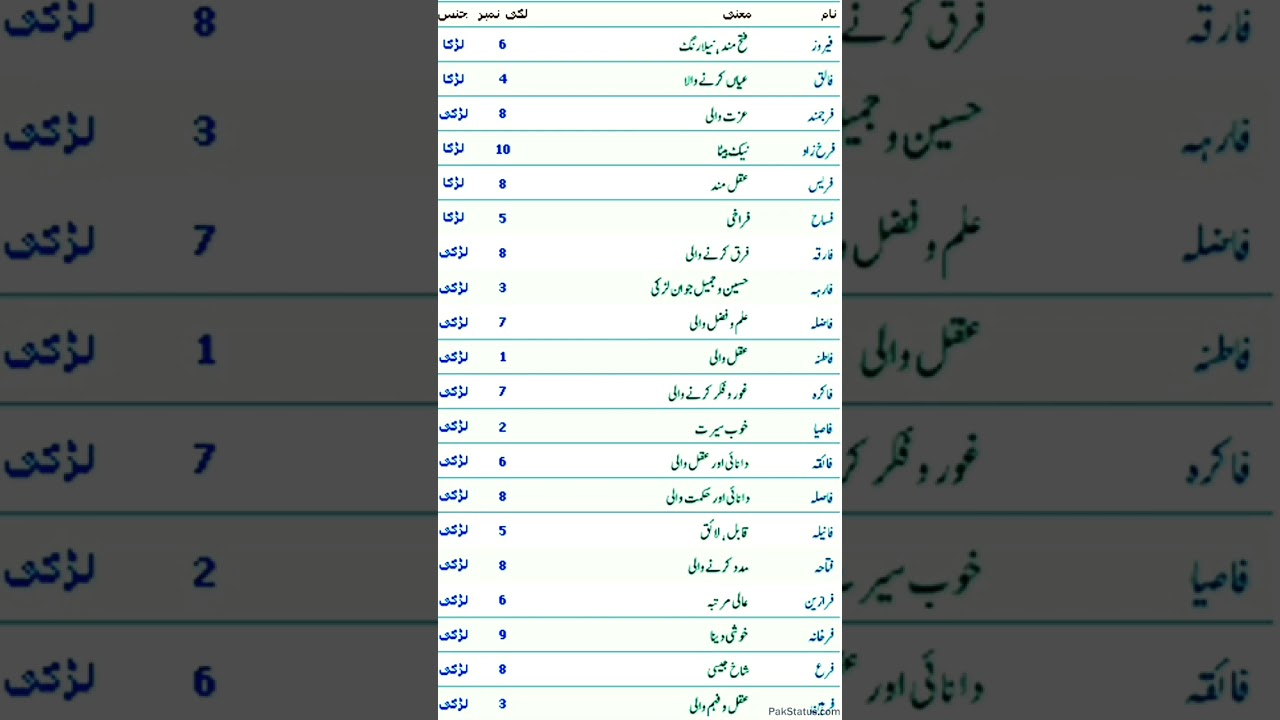 نام معنی لکی نمبر جنس
فیروز فتح مند، نیلا رنگ 6 لڑکا
فالق عیاں کرنے والا 4 لڑکا
فرجمند عزت والی 8 لڑکی
فرخ زاد نیک بیٹا 10 لڑکا
فریس عقل مند 8 لڑکا
فساح فراخی 5 لڑکا
فارقہ فرق کرنے والی 8 لڑکی
فارہہ حسین و جمیل جوان لڑکی 3 لڑکی
فاضلہ علم و فضل والی 7 لڑکی
فاطنہ عقل والی 1 لڑکی
فاکرہ غور و فکر کرنے والی 7 لڑکی
فاصیا خوب سیرت 2 لڑکی
فائقہ دانائی اور عقل والی 6 لڑکی
فاصلہ دانائی اور حکمت والی 8 لڑکی
فانیلہ قابل، لائق 5 لڑکی
فتاحہ مدد کرنے والی 8 لڑکی
فرازین عالی مرتبہ 6 لڑکی
فرغانہ خوشی دینا 9 لڑکی
فرع شاخ جیسی 8 لڑکی
عقل و فہم والی 3 لڑکی
PakStatus.com